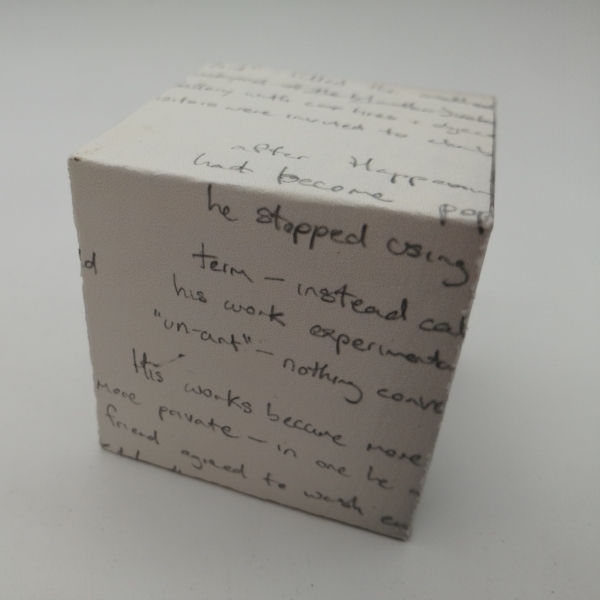 with car tires +
were invited to
after Happen
had become pop
he stopped using
ld
term – instead cal
his work experimenta
"un-art" – nothing conve
His works became more
more private – in one he
friend agreed to wash